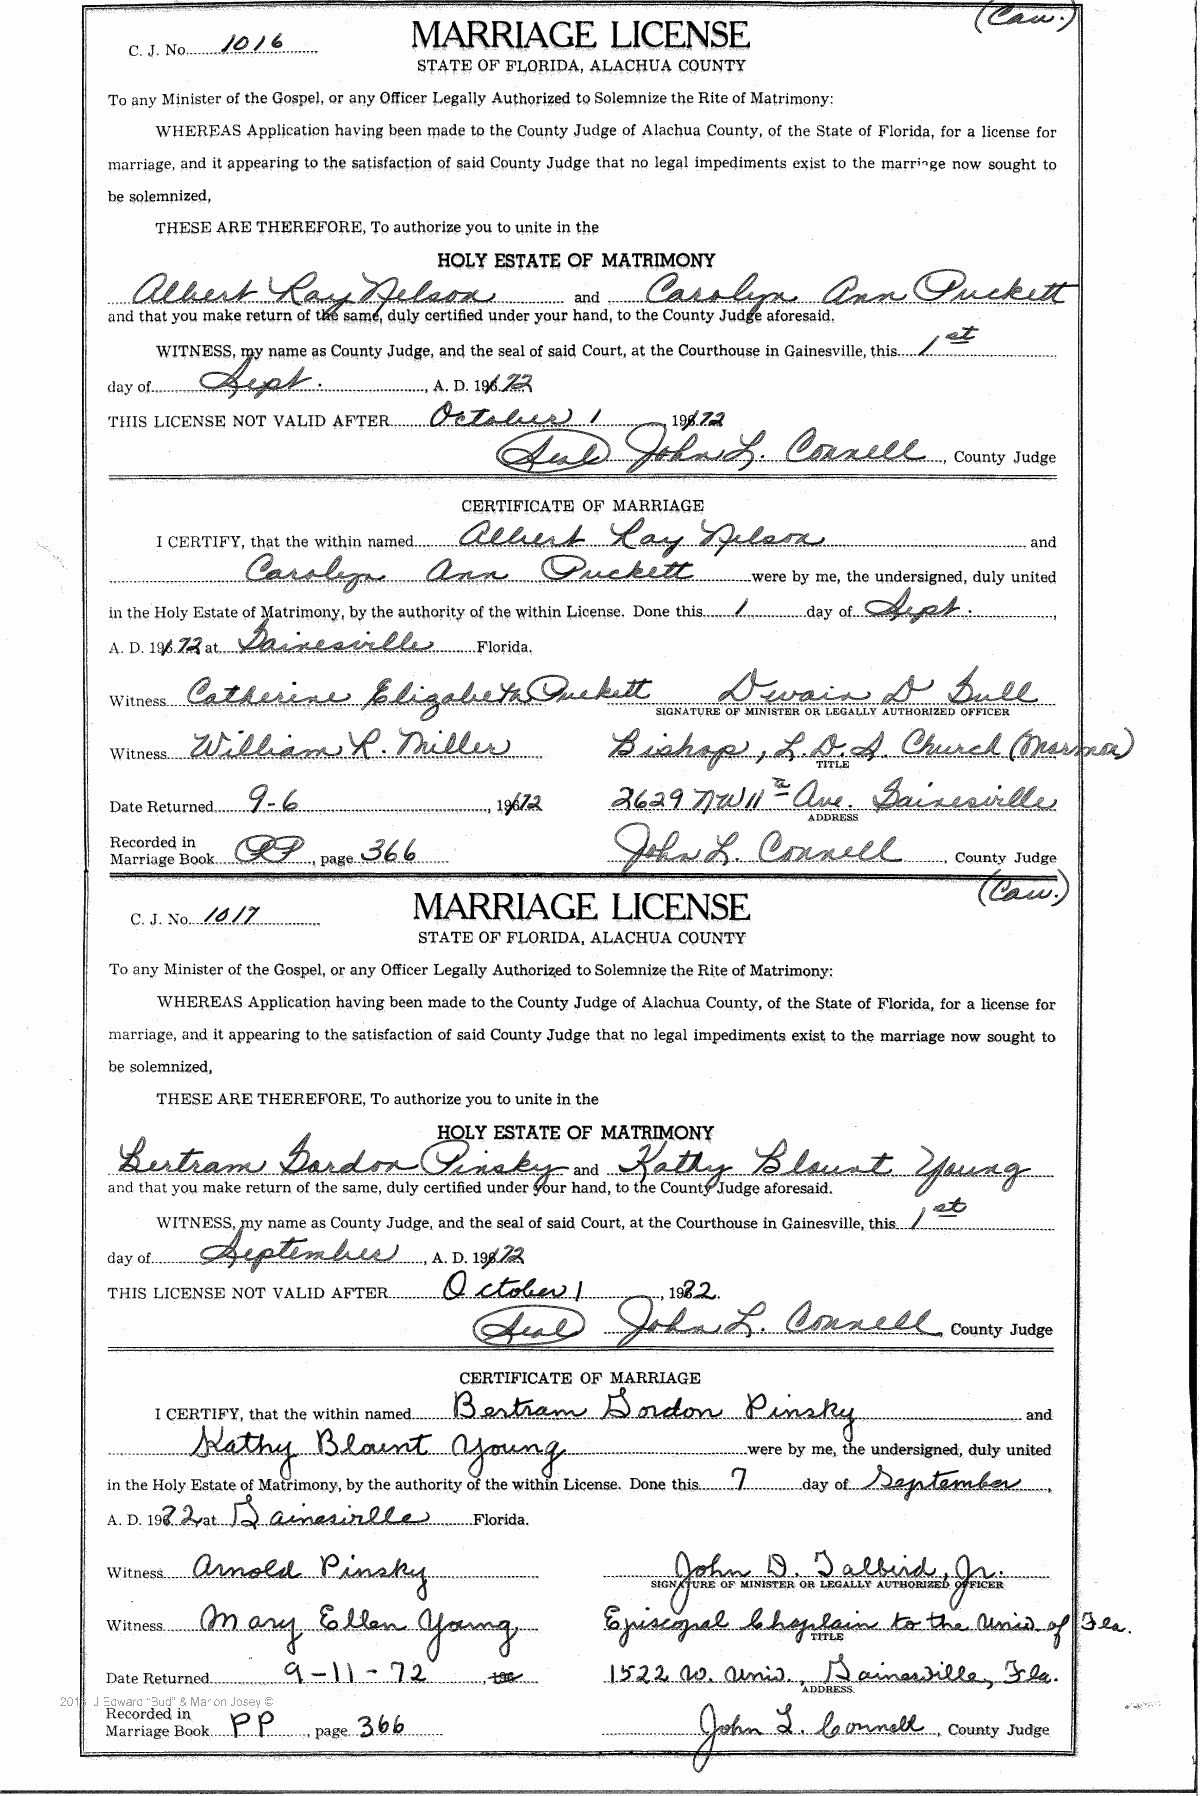 (Cau.)
C. J. No. 1016 MARRIAGE LICENSE
STATE OF FLORIDA, ALACHUA COUNTY
To any Minister of the Gospel, or any Officer Legally Authorized to Solemnize the Rite of Matrimony:
WHEREAS Application having been made to the County Judge of Alachua County, of the State of Florida, for a license for
marriage, and it appearing to the satisfaction of said County Judge that no legal impediments exist to the marriage now sought to
be solemnized,
THESE ARE THEREFORE, To authorize you to unite in the
HOLY ESTATE OF MATRIMONY
Albert Ray Nelson and Carolyn Ann Puckett
and that you make return of the same, duly certified under your hand, to the County Judge aforesaid.
WITNESS, my name as County Judge, and the seal of said Court, at the Courthouse in Gainesville, this 1st
day of Sept. , A. D. 1972
THIS LICENSE NOT VALID AFTER October 1 1972
(Seal) John L. Connell, County Judge
CERTIFICATE OF MARRIAGE
I CERTIFY, that the within named Albert Ray Nelson and
Carolyn Ann Puckett were by me, the undersigned, duly united
in the Holy Estate of Matrimony, by the authority of the within License. Done this 1 day of Sept. ,
A. D. 1972 at Gainesville Florida.
Witness Catherine Elizabeth Puckett Dwain D Gull
SIGNATURE OF MINISTER OR LEGALLY AUTHORIZED OFFICER
Witness William R. Miller Bishop, L.D.S. Church (Mormon)
TITLE
Date Returned 9-6 , 1972 2629 NW 11th Ave. Gainesville
ADDRESS
Recorded in
Marriage Book PP, page 366 John L. Connell, County Judge
(Cau.)
C. J. No. 1017 MARRIAGE LICENSE
STATE OF FLORIDA, ALACHUA COUNTY
To any Minister of the Gospel, or any Officer Legally Authorized to Solemnize the Rite of Matrimony:
WHEREAS Application having been made to the County Judge of Alachua County, of the State of Florida, for a license for
marriage, and it appearing to the satisfaction of said County Judge that no legal impediments exist to the marriage now sought to
be solemnized,
THESE ARE THEREFORE, To authorize you to unite in the
HOLY ESTATE OF MATRIMONY
Bertram Gordon Pinsky and Kathy Blount Young
and that you make return of the same, duly certified under your hand, to the County Judge aforesaid.
WITNESS, my name as County Judge, and the seal of said Court, at the Courthouse in Gainesville, this 1st
day of September, A. D. 1972
THIS LICENSE NOT VALID AFTER October 1, 1972.
(Seal) John L. Connell, County Judge
CERTIFICATE OF MARRIAGE
I CERTIFY, that the within named Bertram Gordon Pinsky and
Kathy Blount Young were by me, the undersigned, duly united
in the Holy Estate of Matrimony, by the authority of the within License. Done this 7 day of September,
A. D. 1972 at Gainesville Florida.
Witness Arnold Pinsky John D. Talbird, Jr.
SIGNATURE OF MINISTER OR LEGALLY AUTHORIZED OFFICER
Witness Mary Ellen Young Episcopal Chaplain to the Univ of Fla.
TITLE
Date Returned 9-11-72, 196 1522 W. Univ., Gainesville, Fla.
ADDRESS
J Edward "Bud" & Marion Josey ©
Recorded in
Marriage Book PP, page 366 John L. Connell, County Judge